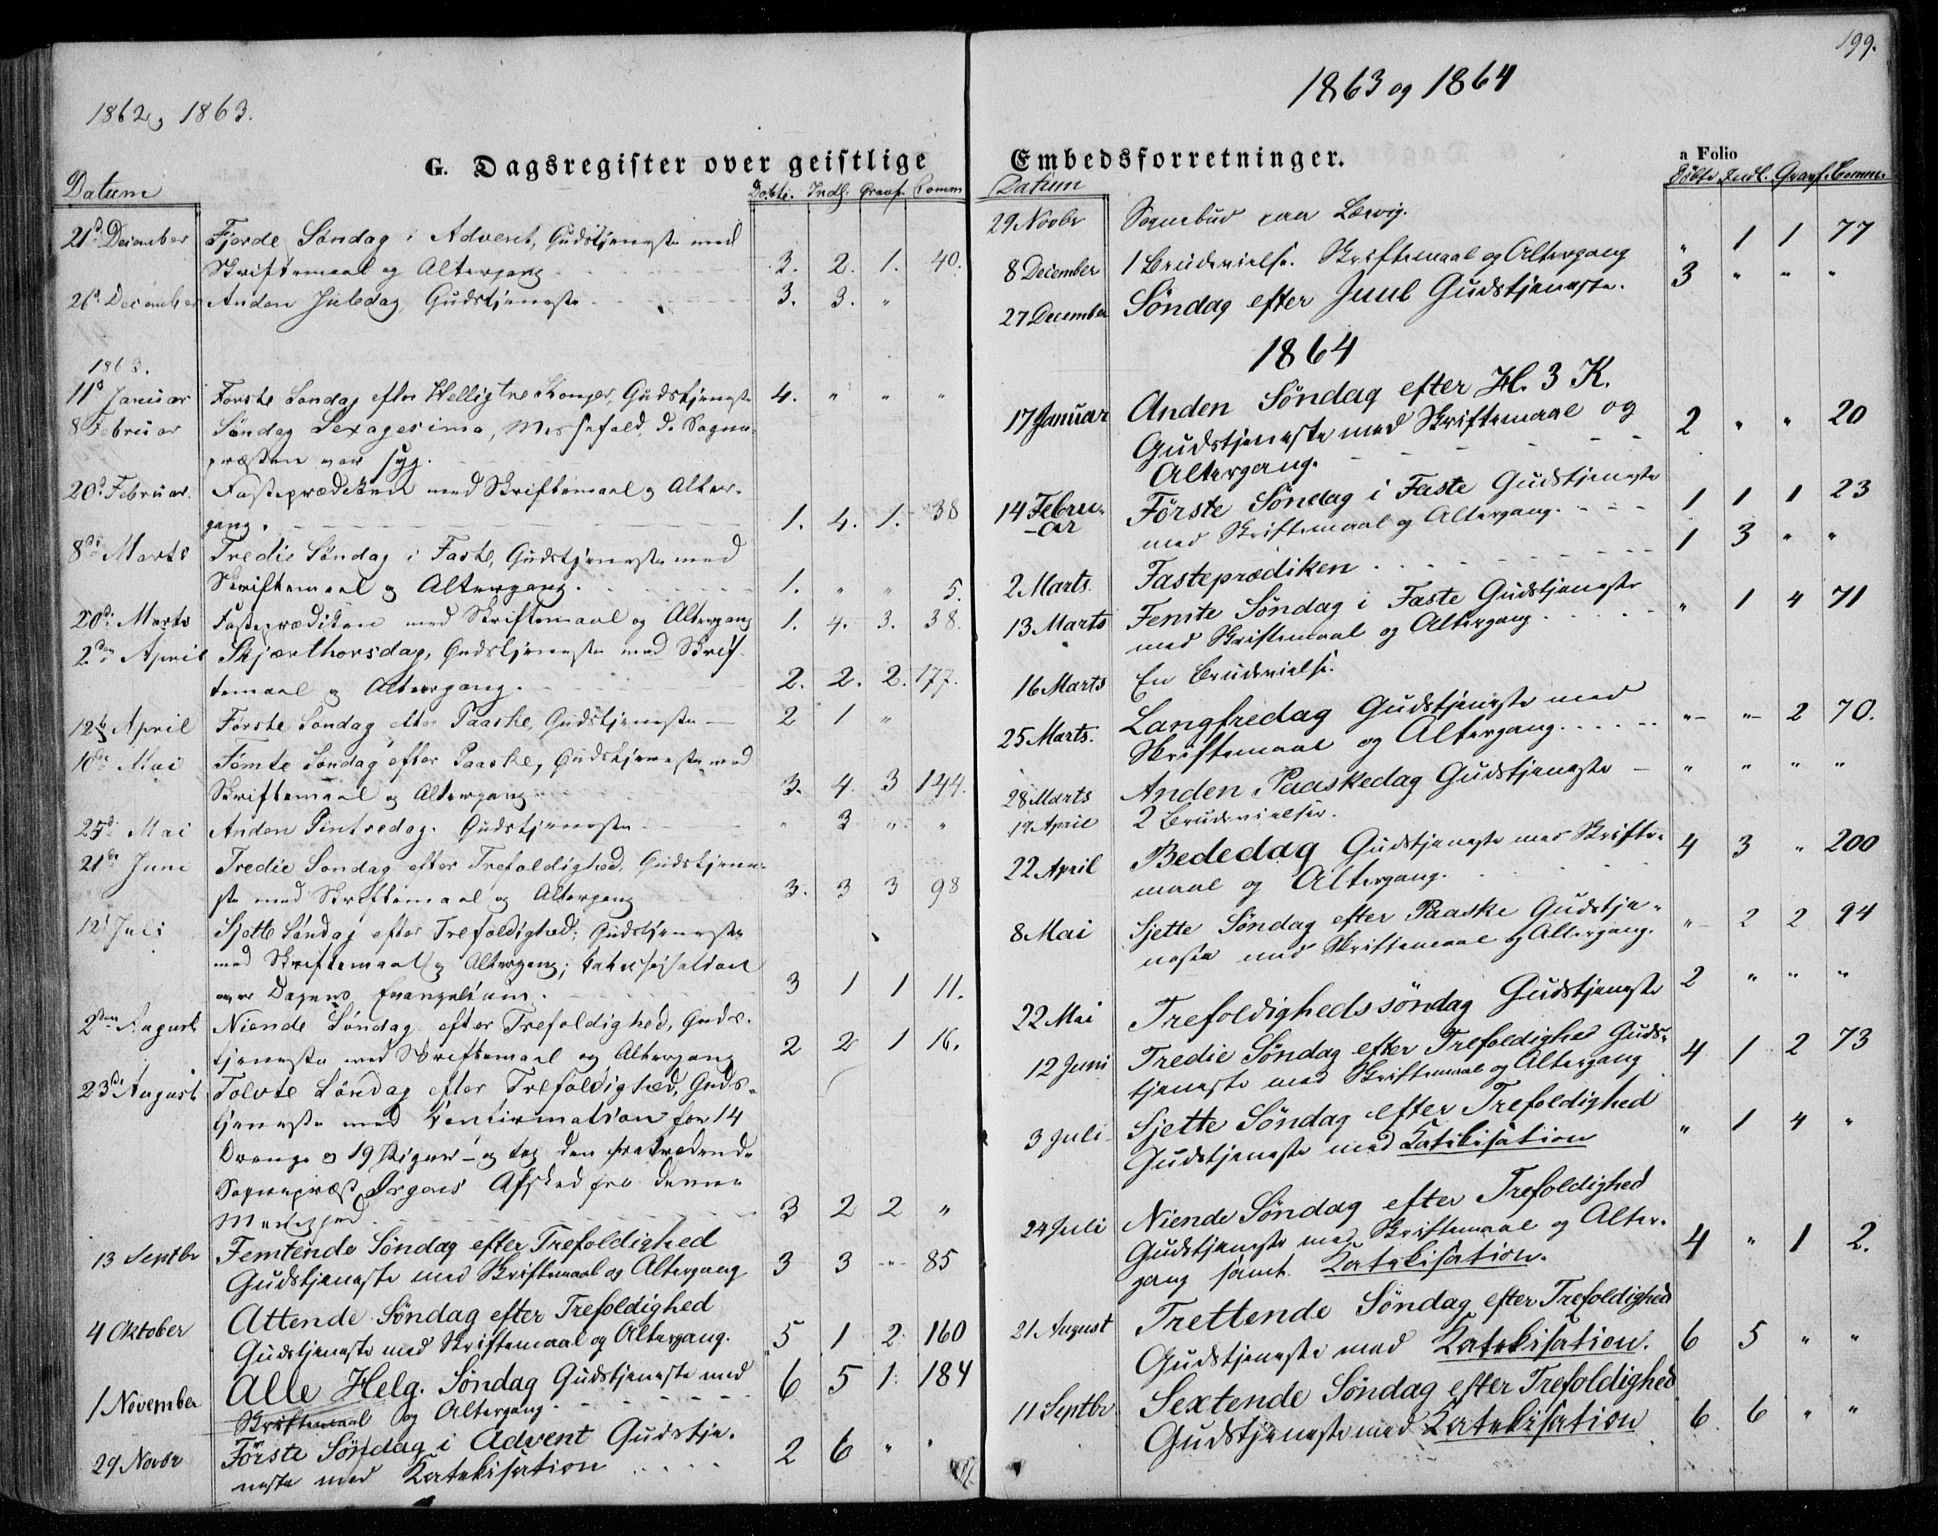 1862 og 1863.
G. Dagsregister over geistlige
Datum Döbte. Indl. Graaf. Comm
21d December Fjerde Søndag i Advent, Gudstjeneste med
Skriftemaal og Altergang 3. 2. 1. 40.
26d December Anden Juledag, Gudstjeneste 3. 3. "
1863.
11d Januar Første Søndag efter Hellig tre Konger, Gudstjeneste 4. " " "
8 Februar Søndag Sexagesima, Messefald, da Sogne-
præsten var syg.
20d Februar. Fasteprædiken med Skriftemaal og Alter-
gang. 1. 4. 1. 38
8de Marts Tredie Søndag i Faste, Gudstjeneste med
Skriftemaal og Altergang. 1. " " 5.
20de Marts Fasteprædiken med Skriftemaal og Altergang 1. 4. 3. 38.
2den April Skjærthorsdag, Gudstjeneste med Skrif-
temaal og Altergang. 2. 2. 2. 177.
12te April Første Søndag efter Paaske, Gudstjeneste 2 1 "
10de Mai Femte Søndag efter Paaske, Gudstjeneste med
Skriftemaal og Altergang 3. 4. 3 144.
25d Mai Anden Pintsedag. Gudstjeneste " 3 " "
21de Juni Tredie Søndag efter Trefoldighed, Gudstjene-
ste med Skriftemaal og Altergang 3. 3 3 98
12t Juli Sjette Søndag efter Trefoldighed; Gudstjeneste
med Skriftemaal og Altergang; Katechisation
over Dagens Evangelium. 3 1 1 11.
2den August Niende Søndag efter Trefoldighed, Guds-
tjeneste med Skriftemaal og Altergang 2 2 1 16.
23de August Tolvte Søndag efter Trefoldighed, Guds-
tjeneste med Konfirmation for 14
Drenge og 19 Piger – og tog den fratrædende
Sognepræst Ørgens Afsked fra denne
Menighed. 3 2 2 "
13 Septbr Femtende Søndag efter Trefoldighed
Gudstjeneste med Skriftemaal og Altergang 3 3 " 85
4 Oktober Attende Søndag efter Trefoldighed
Gudstjeneste med Skriftemaal og Altergang. 5 1 2 160
1 November Alle Helg. Søndag Gudstjeneste med
Skriftemaal og Altergang. 6 5 1 184
29 Novbr Förste Søndag i Advent Gudstje-
neste med Katekisation 2 6 " "
199.
1863 og 1864
Embedsforretninger. a Folio
Datum Döbte Indl. Graaf. Comm.
29 Novbr Sognebud paa Lærvig.
8 December 1 Brudevielse. Skriftemaal og Altergang " 1 1 77
27 December Søndag efter Juul Gudstjeneste. 3 " " "
1864
17 Januar Anden Søndag efter H. 3 K.
Gudstjeneste med Skriftemaal og
Altergang. 2 " " 20
14 Febru-
ar Förste Søndag i Faste Gudstjeneste
med Skriftemaal og Altergang. 1 1 1 23
2 Marts Fasteprædiken 1 3 " "
13 Marts Femte Søndag i Faste Gudstjeneste
med Skriftemaal og Altergang " 1 4 71
16 Marts En Brudevielse.
25 Marts. Langfredag Gudstjeneste med
Skriftemaal og Altergang. " " 2 70.
28 Marts Anden Paaskedag Gudstjeneste " " " "
19 April 2 Brudevielser.
22 April Bededag Gudstjeneste med Skrifte-
maal og Altergang. 4 3 " 200
8 Mai Sjette Søndag efter Paaske Gudstje-
neste med Skriftemaal og Altergang. " 2 2 94
22 Mai Trefoldighedssöndag Gudstjeneste 2 " " "
12 Juni Tredie Søndag efter Trefoldighe Guds-
tjeneste med Skriftemaal og Altergang 4 1 2 73
3 Juli Sjette Søndag efter Trefoldighed
Gudstjeneste med Katekisation " 1 4 "
24 Juli Niende Søndag efter Trefoldighed
Gudstjeneste med Skriftemaal og Alter-
gang samt Katekisation. 4 " 1 2.
21 August Trettende Søndag efter Trefoldighed
Gudstjeneste med Katekisation. 6 5 " "
11 Septbr Sextende Søndag efter Trefoldighed
Gudstjeneste med Katekisation 6 6 " "